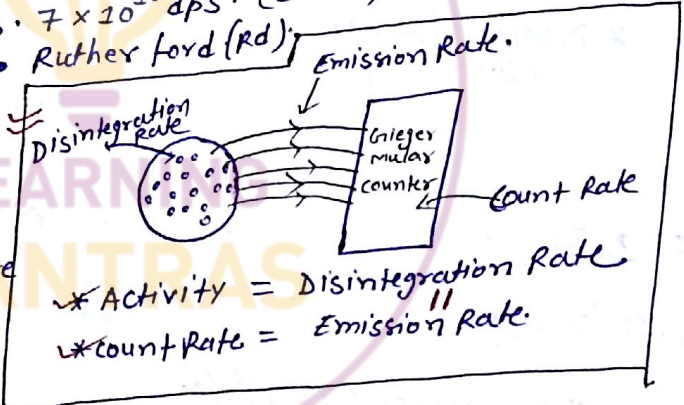 7 × 10 dps.
Ruther ford (Rd).
Emission Rate.
Disintegration
Rate
Gieger
mular
counter
Count Rate
* Activity = Disintegration Rate
"
* Count Rate = Emission Rate.
EARNING
ANTRAS